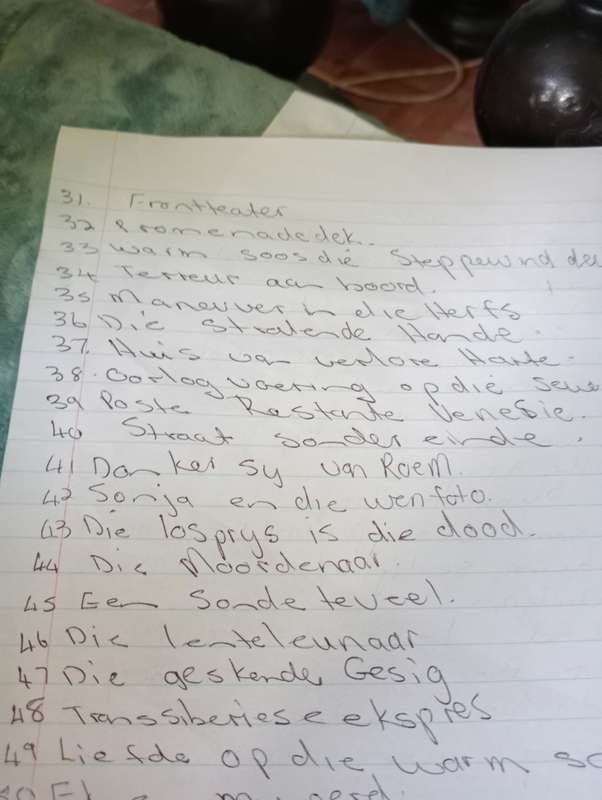 31. Frontteater
32 Promenadedek.
33 Warm soos die Steppewind de
34 Terreur aan boord.
35 Maneuver in die Herfs
36 Die Stralende Hande.
37. Huis van verlore Harte.
38. Oorlogvoering op die Seus
39 Poste Restante Venesie.
40 Straat sonder einde.
41 Donker sy van Roem.
42 Sonja en die wenfoto.
43 Die losprys is die dood.
44 Die Moordenaar.
45 Een Sonde teveel.
46 Die lenteleunaar
47 Die geskende Gesig
48 Transsiberiese ekspres
49 Liefde op die warm so